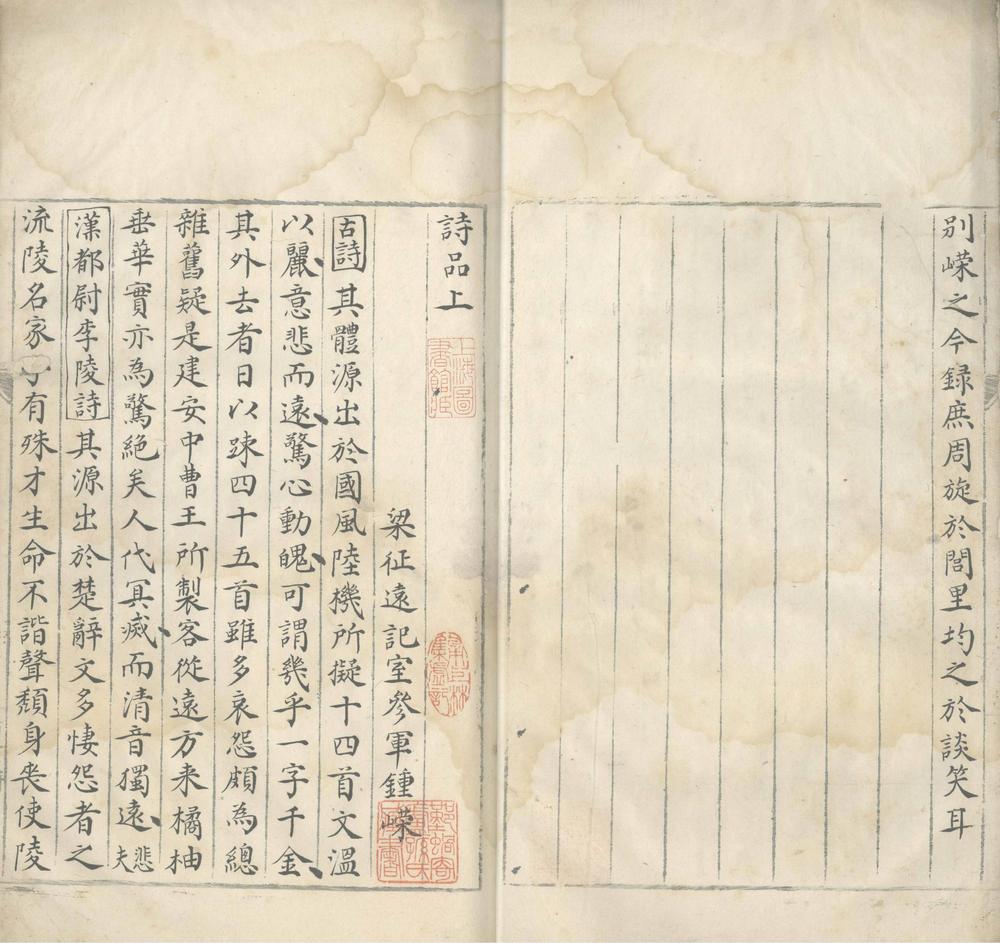 別嶸之今録庶周旋於閭里均之於談笑耳
詩品上
梁征遠記室參軍鍾嶸
古詩其體源出於國風陸機所擬十四首文溫
以麗意悲而遠驚心動魄可謂幾乎一字千金
其外去者日以踈四十五首雖多哀怨頗為總
雜舊疑是建安中曹王所製客從遠方来橘柚
垂華實亦為驚絕矣人代冥滅而清音獨遠悲夫
漢都尉李陵詩其源出於楚辭文多悽怨者之
流陵名家子有殊才生命不諧聲頹身喪使陵